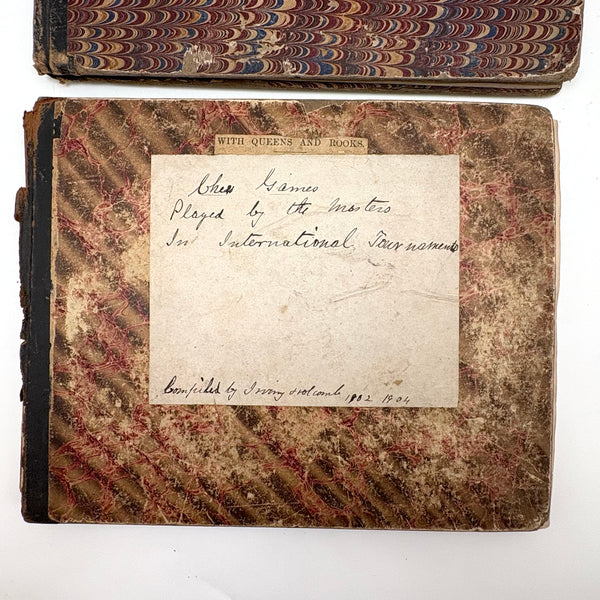 WITH QUEENS AND ROOKS.
Chess Games
Played by the Masters
In International Tournaments
Compiled by Irving Holcomb 1902 1904